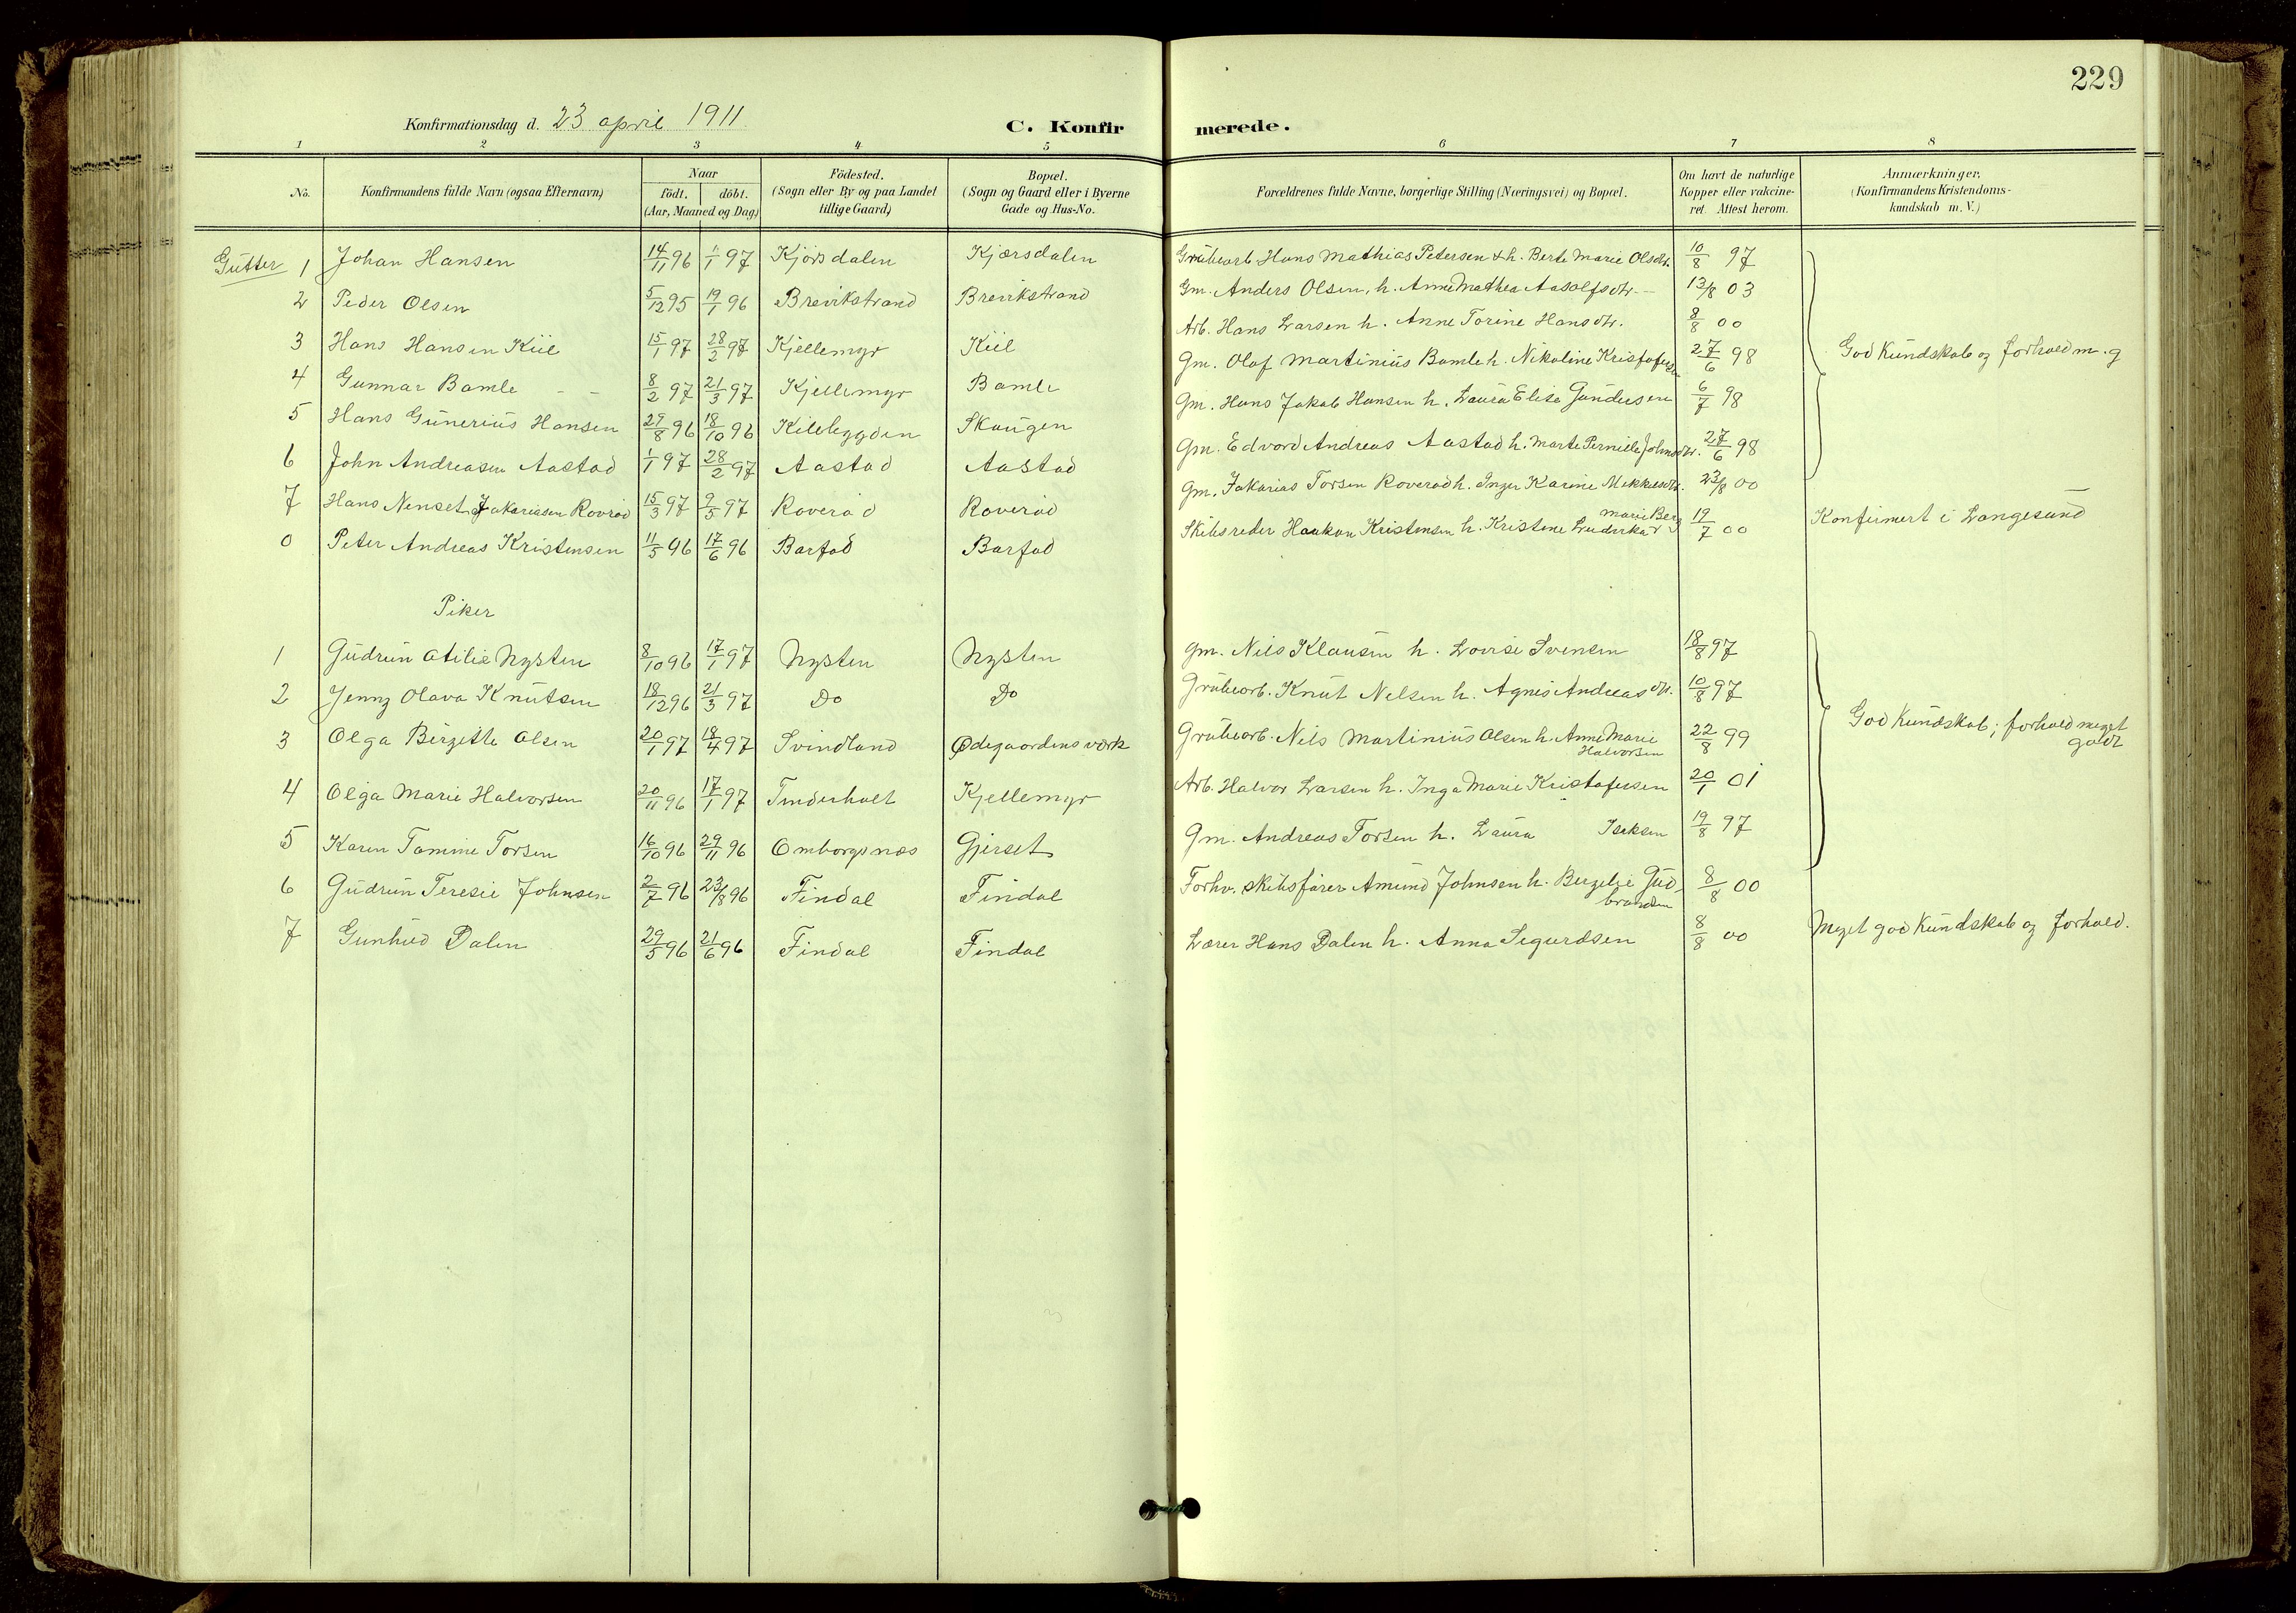 229
Konfirmationsdag d. 23 april 1911
C. Konfirmerede.
1 2 3 4 5 6 7 8
No.
Konfirmandens fulde Navn (ogsaa Efternavn)
Naar
födt. döbt.
(Aar, Maaned og Dag)
Födested.
(Sogn eller By og paa Landet
tillige Gaard)
Bopæl.
(Sogn og Gaard eller i Byerne
Gade og Hus-No.
Forældrenes fulde Navne, borgerlige Stilling (Næringsvei) og Bopæl.
Om havt de naturlige
Kopper eller vakcine-
ret. Attest herom.
Anmærkninger.
(Konfirmandens Kristendoms-
kundskab m. V.)
Gutter 1 Johan Hansen 14/11 96 1/1 97 Kjörsdalen Kjærsdalen Grubearb Hans Mathias Petersen & h. Berte Marie Olsdtr. 10/8 97
2 Peder Olsen 5/12 95 19/1 96 Brevikstrand Brevikstrand Gm. Anders Olsen, h. Anne Mathea Aasolfsdtr. 13/8 03
3 Hans Hansen Kiil 15/1 97 28/2 97 Kjellemyr Kiil Arb. Hans Larsen h. Anne Torine Hansdtr. 8/8 00
4 Gunnar Bamle - - 8/2 97 21/3 97 Kjellemyr Bamle Gm. Olaf Martinius Bamle h. Nikoline Kristofersen 27/6 98
God Kundskab og forhold m. g
5 Hans Gunerius Hansen 29/8 96 18/10 96 Kilebygden Skaugen Gm. Hans Jakob Hansen h. Laura Elise Gundersen 6/7 98
6 John Andreasen Aastad 1/1 97 28/2 97 Aastad Aastad Gm. Edvard Andreas Aastad h. Marte Pernille Johnsdtr. 27/6 98
7 Hans Nenset Jakariasen Rovröd 15/3 97 9/5 97 Roveröd Roveröd Gm. Jakarias Torsen Roveröd h. Inger Karine Mikkelsdtr. 23/8 00
0 Peter Andreas Kristensen 11/5 96 17/6 96 Barfod Barfod Skibsreder Haakon Kristensen h. Kristene Ludvika Marie Berg 19/7 00 Konfirmert i Langesund
Piker
1 Gudrun Otilie Nysten 8/10 96 17/1 97 Nysten Nysten gm. Nils Klausen h. Lovise Svensen 18/8 97
2 Jenny Olava Knutsen 18/12 96 21/3 97 Do Do Grubearb. Knut Nelsen h. Agnes Andreasdtr. 10/8 97
3 Olga Birgitte Olsen 20/1 97 18/4 97 Svindland Ødegaardens værk Grubearb. Nils Martinius Olsen h. Anne Marie
Halvorsen 22/8 99
God Kundskab; forhold meget
godt
4 Olga Marie Halvorsen 20/11 96 17/1 97 Tinderholt Kjellemyr Arb. Halvor Larsen h. Inga Marie Kristofersen 20/1 01
5 Karen Tomine Torsen 16/10 96 29/11 96 Omborgsnæs Gjerset Gm. Andreas Torsen h. Laura Isaksen 19/8 97
6 Gudrun Teresie Johnsen 2/7 96 23/8 96 Findal Findal Forhv. skibsfører Amund Johnsen h. Bergelie Gud
brandsen 8/8 00
7 Gunhild Dalen 29/5 96 21/6 96 Findal Findal Lærer Hans Dalen h. Anna Sigurdsen 8/8 00 Meget god Kundskab og forhold.